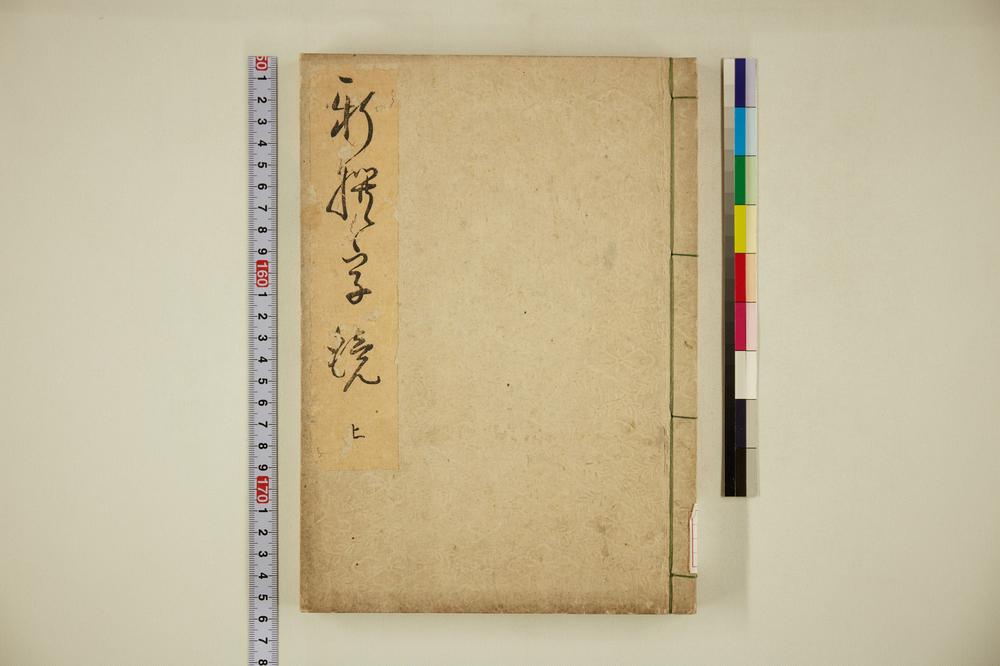 新撰字鏡
上
50
1
2
3
4
5
6
7
8
9
160
1
2
3
4
5
6
7
8
9
170
1
2
3
4
5
6
7
8